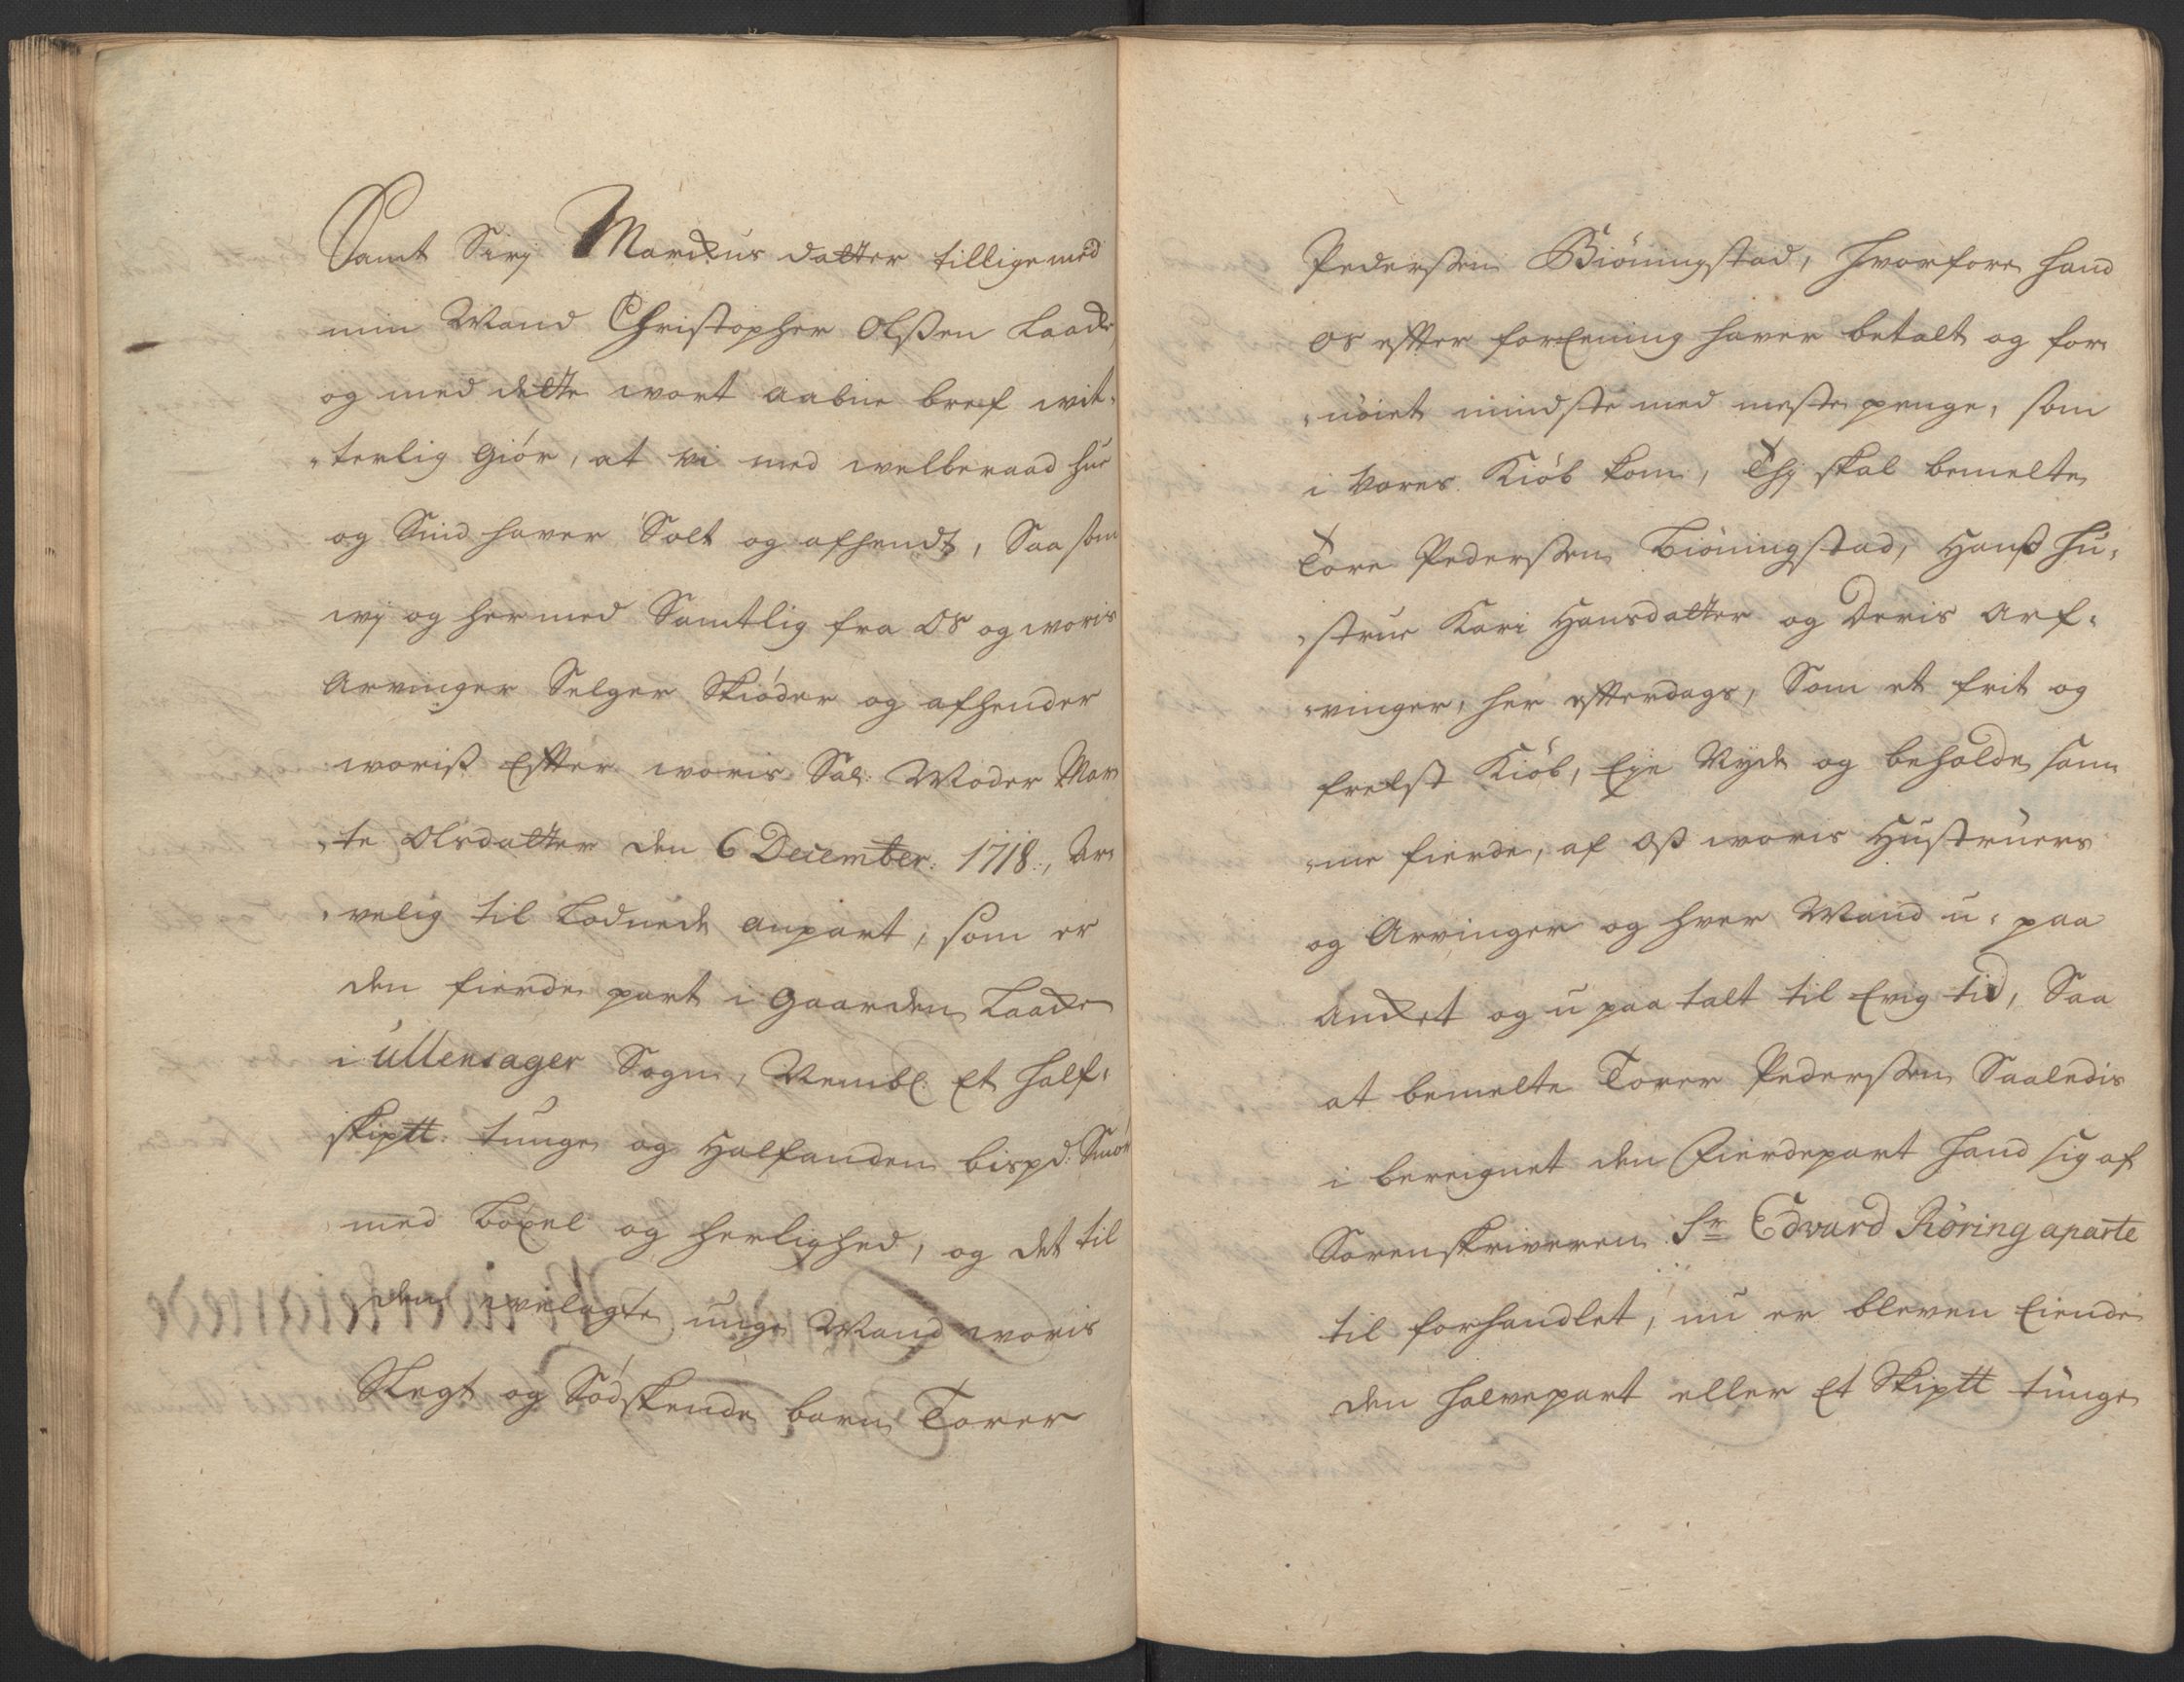 Samt Sirj Marcus datter tillige med
min Mand Christopher Olßen Laache
og med dette wort aabne bref wit-
terlig Giör, at Vi med welberaad hue
og Sind haver Solt og afhendt, Saa som
wj og her med Samtlig fra OS og woris
Arvinger Selger Skiöder og afhender
woriß Efter woris Sal: Moder Mar
te Olsdatter den 6 December: 1718, Ar
velig til Lodnede anpart, som er
den fierde part i Gaarden Laache
i Ullensager Sogn, Nembl: Et half-
skiptt: tunge og Halfanden bispd: Smör
med Böxel og herlighed, og det til
den welagte unge Mand woris
Slegt og Södskende barn Torer
Pederßen Biöningstad, hvorfore hand
os efter forEening haver betalt og for
nöiet mindste med meste penge, som
i Vores Kiöb kom, Thj skal bemelte
Tore Pederßen Biöningstad, Hanß Hu-
strue Kari Hansdatter og Deris Arf-
vinger, her efterdags, Som et frit og
frelst Kiöb, Eye Nyde og beholde sam
me fierde, af Oß woris Hustruers
og Arvinger og hver Mand u- paa
Ancket og u paa talt til Evig tid, Saa
at bemelte Torer Pederßen Saaledis
i bereignet den Fierdepart hand sig af
Sorenskriveren Sr Edvard Röring aparte
til forhandlet, nu er bleven Eiende
den halvepart eller Et Skiptt tunge